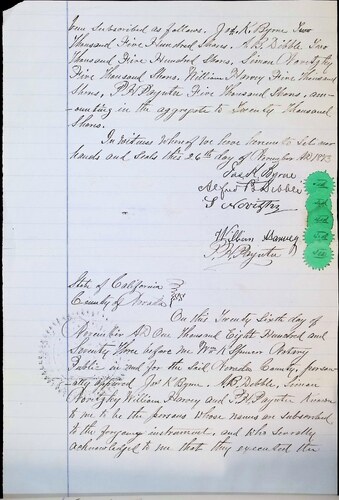 been subscribed as follows. Jas. K. Byrne Two
Thousand Five Hundred Shares. A. B. Dibble Two
Thousand Five Hundred Shares. Simon Novitzky
Five Thousand Shares. William Harvey Five Thousand
Shares, P. W. Paynter Five Thousand Shares, am-
ounting in the aggregate to Twenty Thousand
Shares.
In witness whereof we have hereunto set our
hands and seals this 26th day of November AD 1873
Jas K. Byrne
Alfred B. Dibble
S Novitzky
William Harvey
P. W. Paynter
State of California
County of Nevada
On this Twenty Sixth day of
November A.D One Thousand Eight Hundred and
Seventy Three before me Wm K Spencer Notary
Public in and for the said Nevada County, person-
ally appeared Jas K Byrne. A. B. Dibble, Simon
Novitzky William Harvey and P. W. Paynter known
to me to be the persons whose names are subscribed
to the foregoing instrument, and who severally
acknowledged to me that they executed the